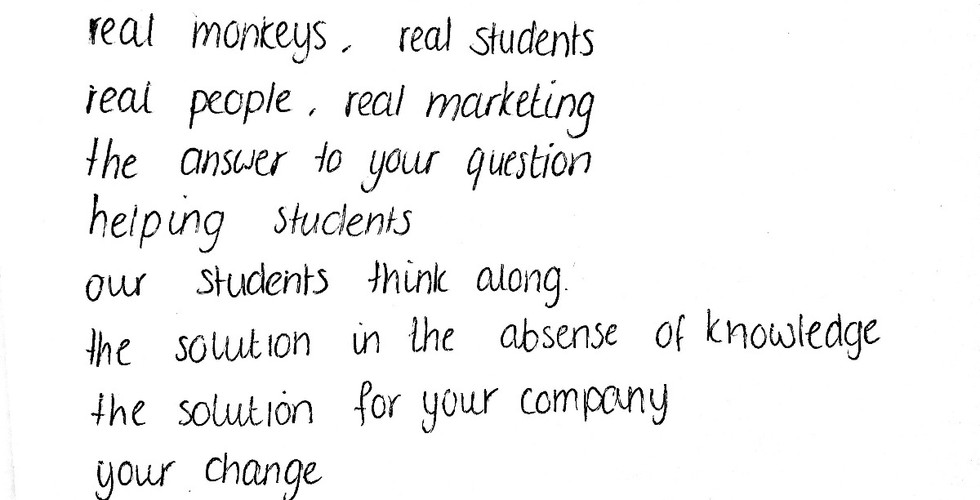 real monkeys, real students
real people, real marketing
the answer to your question
helping students
our students think along.
the solution in the absense of knowledge
the solution for your company
your change